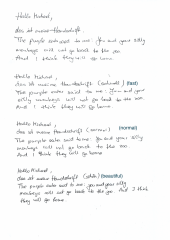 Hallo Michael,
das ist meine Handschrift
The purple unicorn said to me: You and your silly
monkeys will not go back to the zoo.
And I think they will go home
Hallo Michael,
das ist meine Handschrift (schnell) (fast)
The purple said to me: You and your
silly monkeys will not go back to the zoo
And I think they will go home
Hallo Michael,
das ist meine Handschrift (normal)
The purple said to me: You and your silly
monkeys will not go back to the zoo.
And I think they will go home
Hallo Michael,
das ist meine Handschrift (schön) (beautiful)
The purple said to me: you and your silly
monkeys will not go back to the zoo. And I think
they will go home